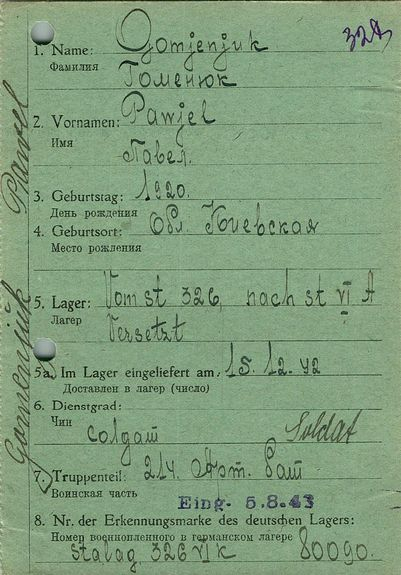 327
1. Name: Gomjenjuk
Фамилия Гоменюк
2. Vornamen: Pawjel
Имя
Павел.
3. Geburtstag: 1920.
День рождения
4. Geburtsort: Обл. Киевская
Место рождения
5. Lager: Vom st 326, nach st VI A
Лагер Versetzt
5a. Im Lager eingeliefert am: 15. 12. 42
Доставлен в лагер (число)
6. Dienstgrad:
Чин солдат Soldat
7. Truppenteil: 214. Арт.
Воинская часть
Eing. 5.8.43
8. Nr. der Erkennungsmarke des deutschen Lagers:
Номер военнопленного в германском лагере
Stalag 326 VI K 80090.
Gomenjuk Pawel